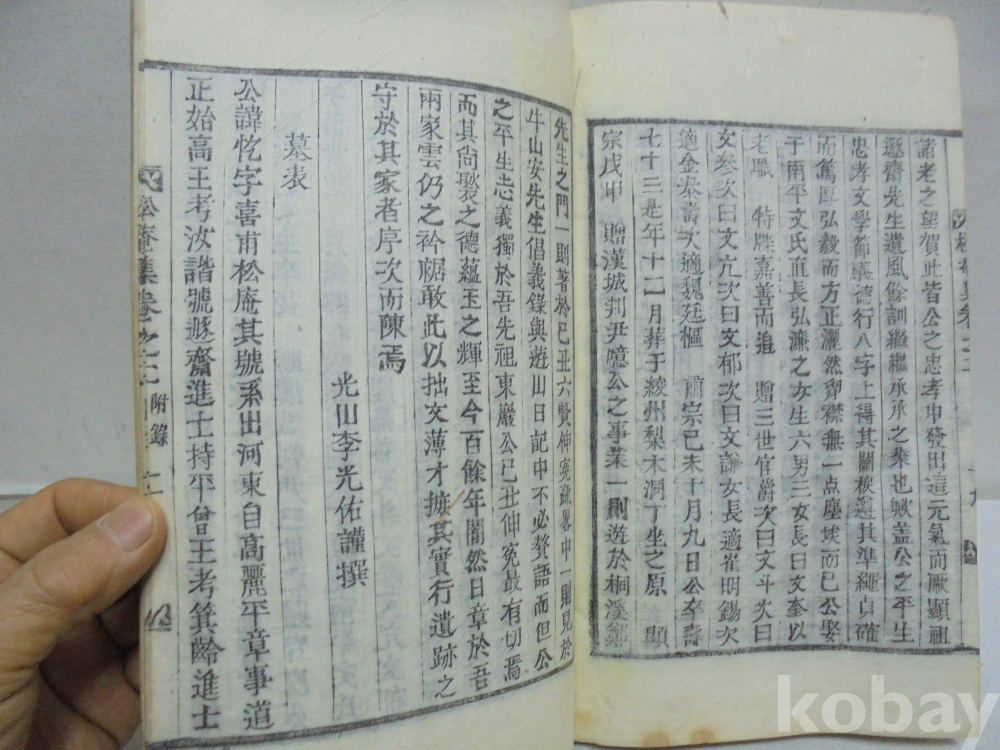 諸老之望賀此皆公之忠孝中發出這元氣而厥顯祖
遯齋先生遺風餘訓繼繼承承之業也歟蓋公之平生
忠孝文學節義德行八字上得其關棙遵其準繩貞確
而篤厚弘毅而方正灑然胷襟無一点塵埃而已公娶
于南平文氏直長弘濂之女生六男三女長曰文奎以
老職 特陞嘉善而追 贈三世官爵次曰文斗次曰
文參次曰文亢次曰文郁次曰文謙女長適崔明錫次
適金泰壽次適魏廷樞 肅宗己未十月九日公卒壽
七十三是年十二月葬于綾州梨木洞丁坐之原 顯
宗戊申 贈漢城判尹噫公之事業一則遊於桐溪鄭
先生之門一則著於己丑六賢伸寃疏畧中一則見於
牛山安先生倡義錄與遊山日記中不必贅語而但公
之平生志義獨於吾先祖東巖公己丑伸寃最有切焉
而其尙褧之德蘊玉之輝至今百餘年闇然日章於吾
兩家雲仍之衿裾敢此以拙文薄才摭其實行遺跡之
守於其家者序次而陳焉
光山李光佑謹撰
墓表
公諱忔字喜甫松庵其號系出河東自高麗平章事道
正始高王考汝諧號遯齋進士持平曾王考箕齡進士
松庵集卷之二 附錄
kobay